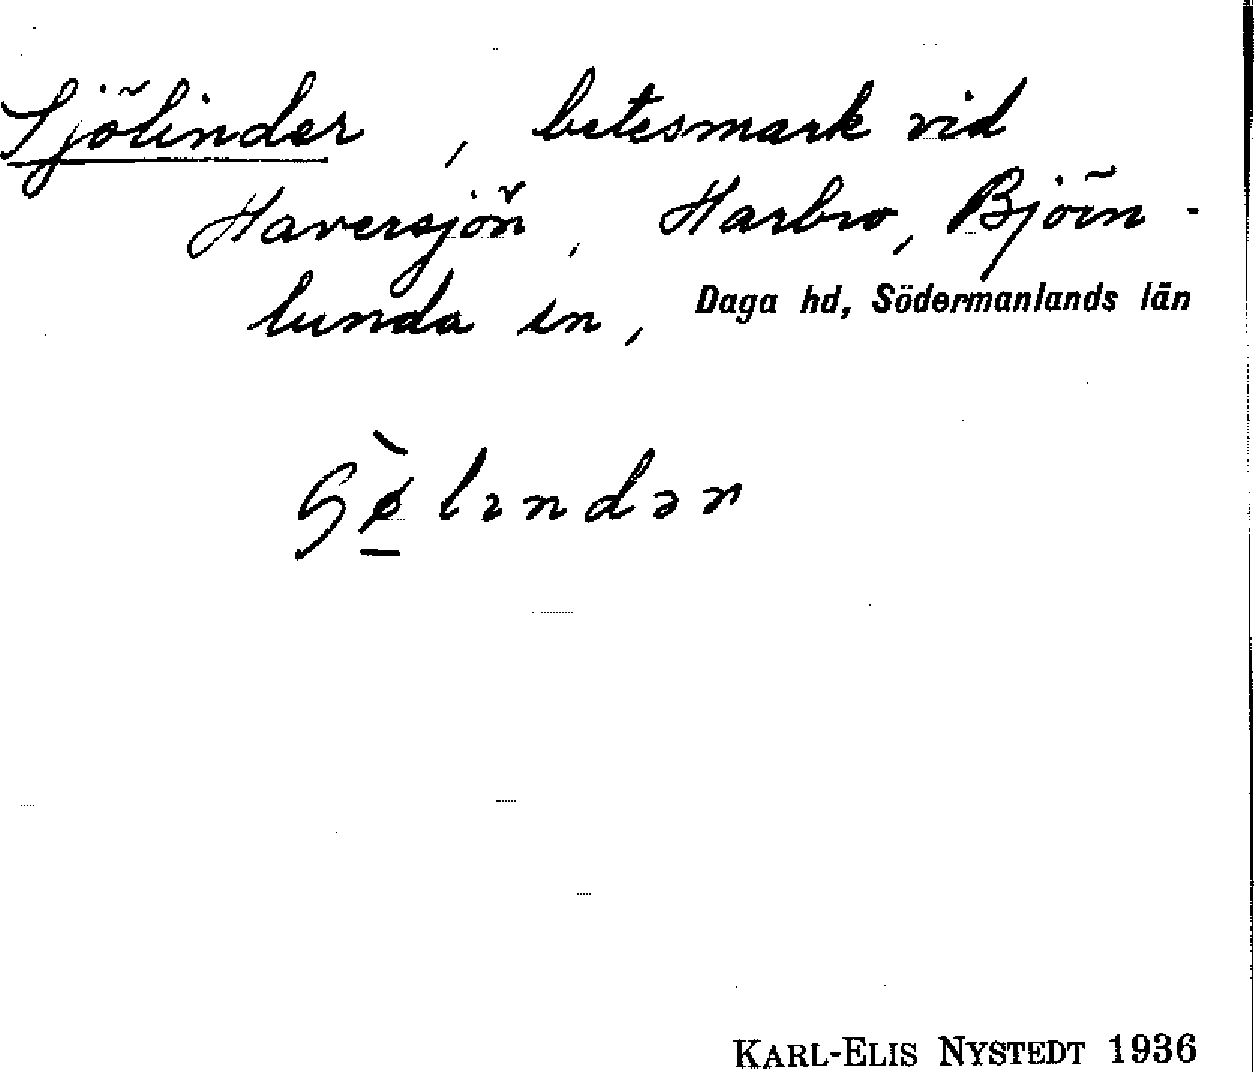 Sjölinder, betesmark vid
Haversjön, Harbro, Björn-
lunda sn, Daga hd, Södermanlands län
KARL-ELIS NYSTEDT 1936